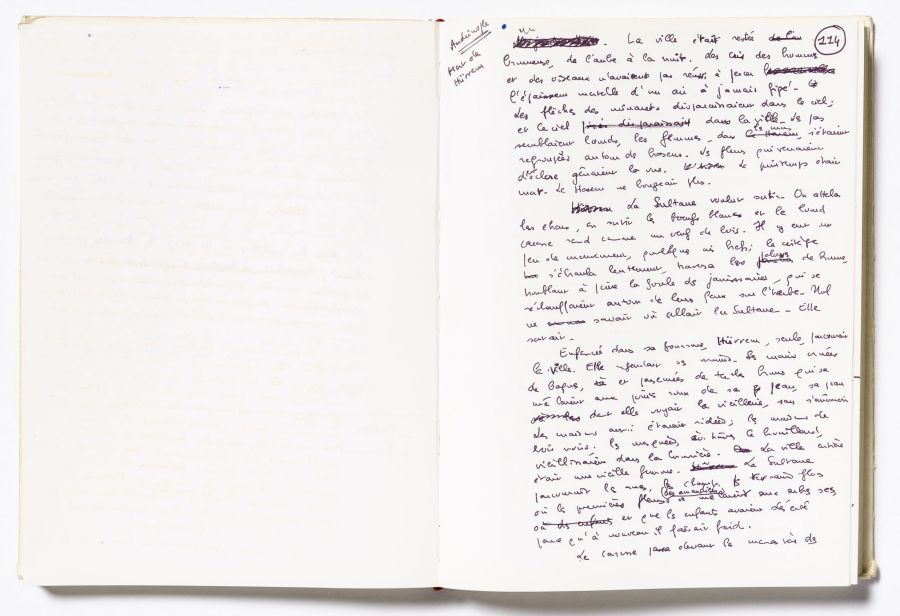 114
La ville était restée
brumeuse, de l'aube à la nuit. Les cris des hommes
et des oiseaux n'avaient pas réussi à percer
l'épaisseur nouvelle d'un air à jamais figé.
Les flèches des minarets disparaissaient dans le ciel,
et le ciel dans la ville. Les pas
semblaient lourds, les femmes, dans s'étaient
regroupées autour de braseros. Les fleurs qui venaient
d'éclore gênaient la vue. Le printemps était
mort. Le Harem ne bougeait plus.
La Sultane voulut sortir. On attela
les chevaux, on sortit les bœufs blancs et le lourd
carrosse rond comme un œuf de bois. Il y eut un
peu de mouvement, quelques cris brefs; le cortège
s'ébranla lentement, traversa les de brume,
troublant à peine la foule de janissaires, qui se
réchauffaient autour de leurs feux sur l'herbe. Nul
ne savait où allait la Sultane. Elle
sortait.
Enfoncée dans sa fourrure, Hürrem, seule, parcourait
la ville. Elle regardait ses mains. Ses mains ornées
de bagues, et parsemées de taches brunes qui se
mêlaient aux poils roux de sa peau, sa peau
dont elle voyait la vieillesse, sans s'émouvoir
Les maisons aussi étaient ridées; les maisons de
bois noirs. Les mosquées, à travers le brouillard,
vieillissaient dans la lumière. La ville entière
était une vieille femme. La Sultane
parcourait les rues, les champs, les terrains plus
où les premières fleurs des amandiers se mêlaient aux
et que les enfants avaient déserté
parce qu'à nouveau il faisait froid.
Le carrosse passa devant le